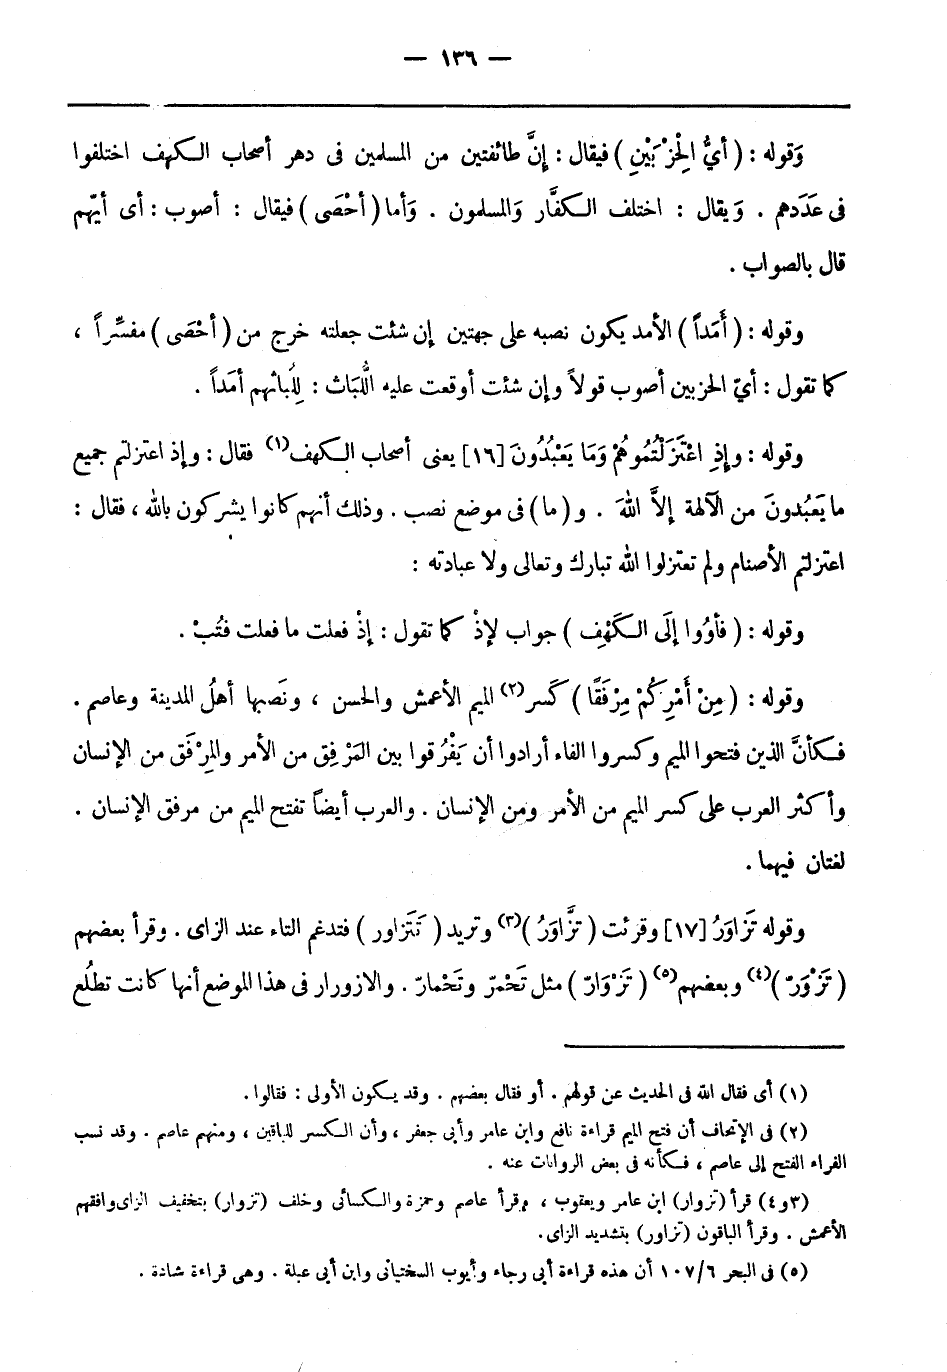 — ١٣٦ —
وَقوله : ( أىُّ الْحِزْبَيْنِ ) فيقال : إنَّ طائفتين من المسلمين فى دهر أصحاب الكهف اختلفوا
فى عَدَدهم . وَيقال : اختلف الكفَّار وَالمسلمون . وَأما ( أحْصَى ) فيقال : أصوب : أى أيّهم
قال بالصواب .
وقوله : ( أَمَداً ) الأمد يكون نصبه على جهتين إن شئت جعلته خرج من ( أحْصَى ) مفسِّراً ،
كما تقول : أىّ الحزبين أصوب قولاً وإن شئت أوقعت عليه اللُّبَاث : لِلُبائهم أمَداً .
وقوله : وإِذِ اعْتَزَلْتُمُوهُمْ وَمَا يَعْبُدُونَ [١٦] يعنى أصحاب الكهف(١) فقال : وإذ اعتزلتم جميع
ما يَعبُدونَ من الآلهة إلاَّ اللهَ . و ( ما ) فى موضع نصب . وذلك أنهم كانوا يشركون بالله ، فقال :
اعتزلتم الأصنام ولم تعتزلوا الله تبارك وتعالى ولا عبادته :
وقوله : ( فأوُوا إلَى الكَهْفِ ) جواب لإذْ كما تقول : إذْ فعلت ما فعلت فتُبْ .
وقوله : ( مِنْ أَمْرِكُمْ مِرْفَقًا ) كَسر(٢) الميم الأعمش والحسن ، ونَصبها أهلُ المدينة وعاصم .
فكأنَّ الذين فتحوا الميم وكسروا الفاء أرادوا أن يَفْرُقوا بين المَرْفِق من الأمر والمِرْفَق من الإنسان
وأكثر العرب على كسر الميم من الأمر ومن الإنسان . والعرب أيضاً تفتح الميم من مرفق الإنسان .
لغتان فيهما .
وقوله تَزَاوَرُ [١٧] وقرئت ( تَزَّاوَرُ )(٣) وتريد ( تَتَزاور ) فتدغم التاء عند الزاى . وقرأ بعضهم
( تَزْوَرّ )(٤) وبعضهم(٥) ( تَزْوَارّ ) مثل تَحْمَرّ وتَحْمارّ . والازورار فى هذا الموضع أنها كانت تطلُع
(١) أى فقال الله فى الحديث عن قولهم . أو فقال بعضهم . وقد يكون الأولى : فقالوا .
(٢) فى الإتحاف أن فتح الميم قراءة نافع وابن عامر وأبى جعفر ، وأن الكسر للباقين ، ومنهم عاصم . وقد نسب
الفراء الفتح إلى عاصم ، فكأنه فى بعض الروايات عنه .
(٣و٤) قرأ (تزوار) ابن عامر ويعقوب ، وقرأ عاصم وحمزة والكسائى وخلف (تزوار) بتخفيف الزاى وافقهم
الأعمش . وقرأ الباقون (تزاور) بتشديد الزاى.
(٥) فى البحر ١٠٧/٦ أن هذه قراءة أبى رجاء وأيوب السختيانى وابن أبى عبلة . وهى قراءة شاذة .